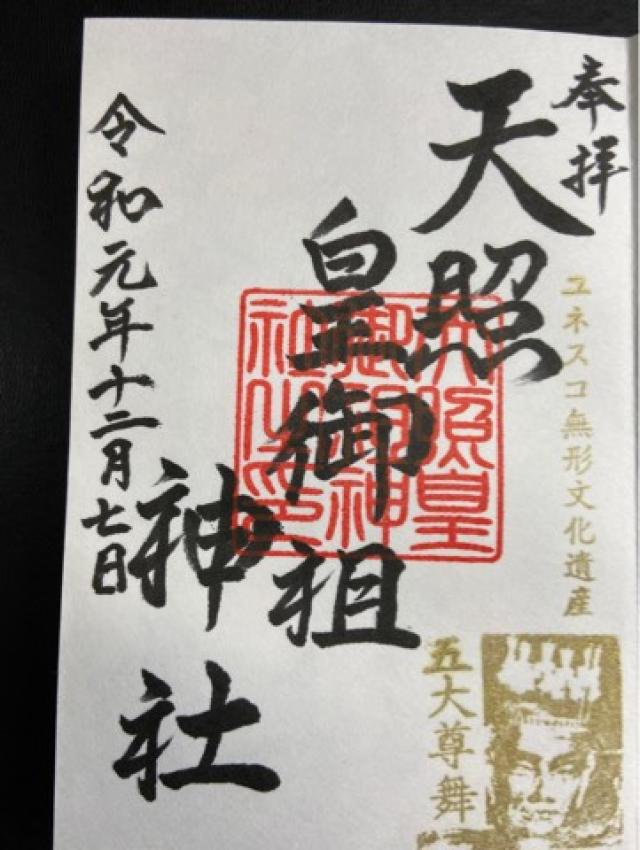 奉拝
天照
皇御祖
神社
令和元年十二月七日
ユネスコ無形文化遺産
五大尊舞
天照皇
御祖神
社之印